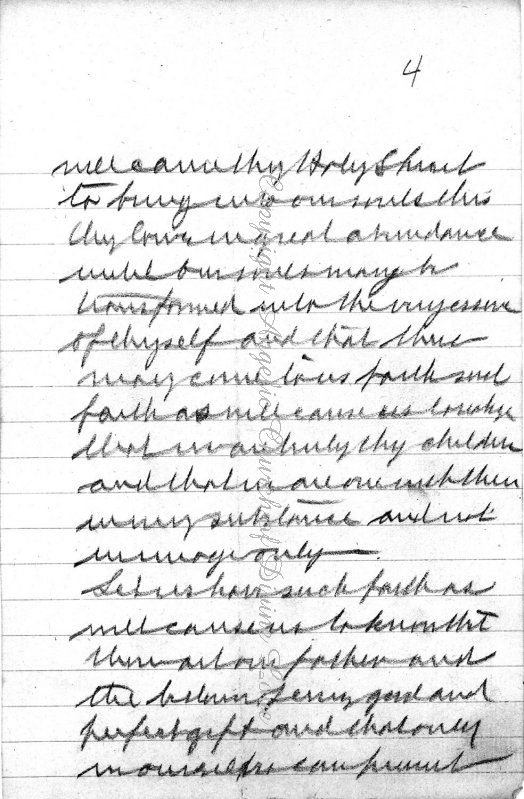 4
will cause thy Holy Ghost
to bring into our souls this
thy love in great abundance
until our souls may be
transformed into the very essence
of thyself and that there
may come to us faith such
faith as will cause us to realize
that we are truly thy children
and that we are one with thee
in very substance and not
in image only —.
Let us have such faith as
will cause us to know that
thou art our father and
the bestower of every good and
perfect gift and that only
we ourselves can prevent